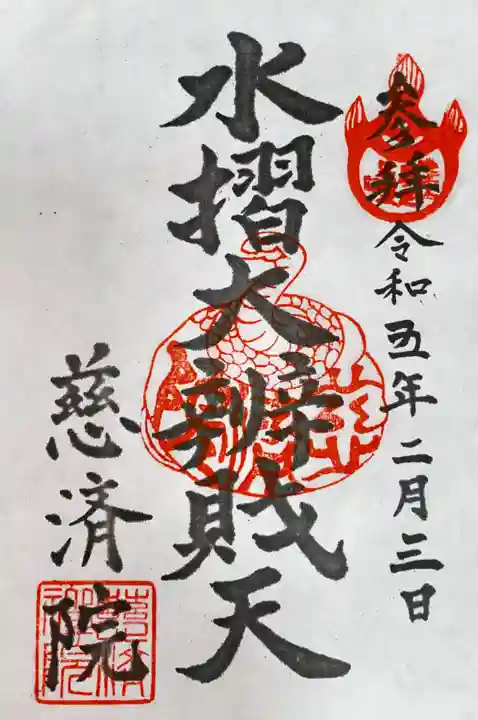 参拝
令和五年二月三日
水摺大辨財天
慈済院